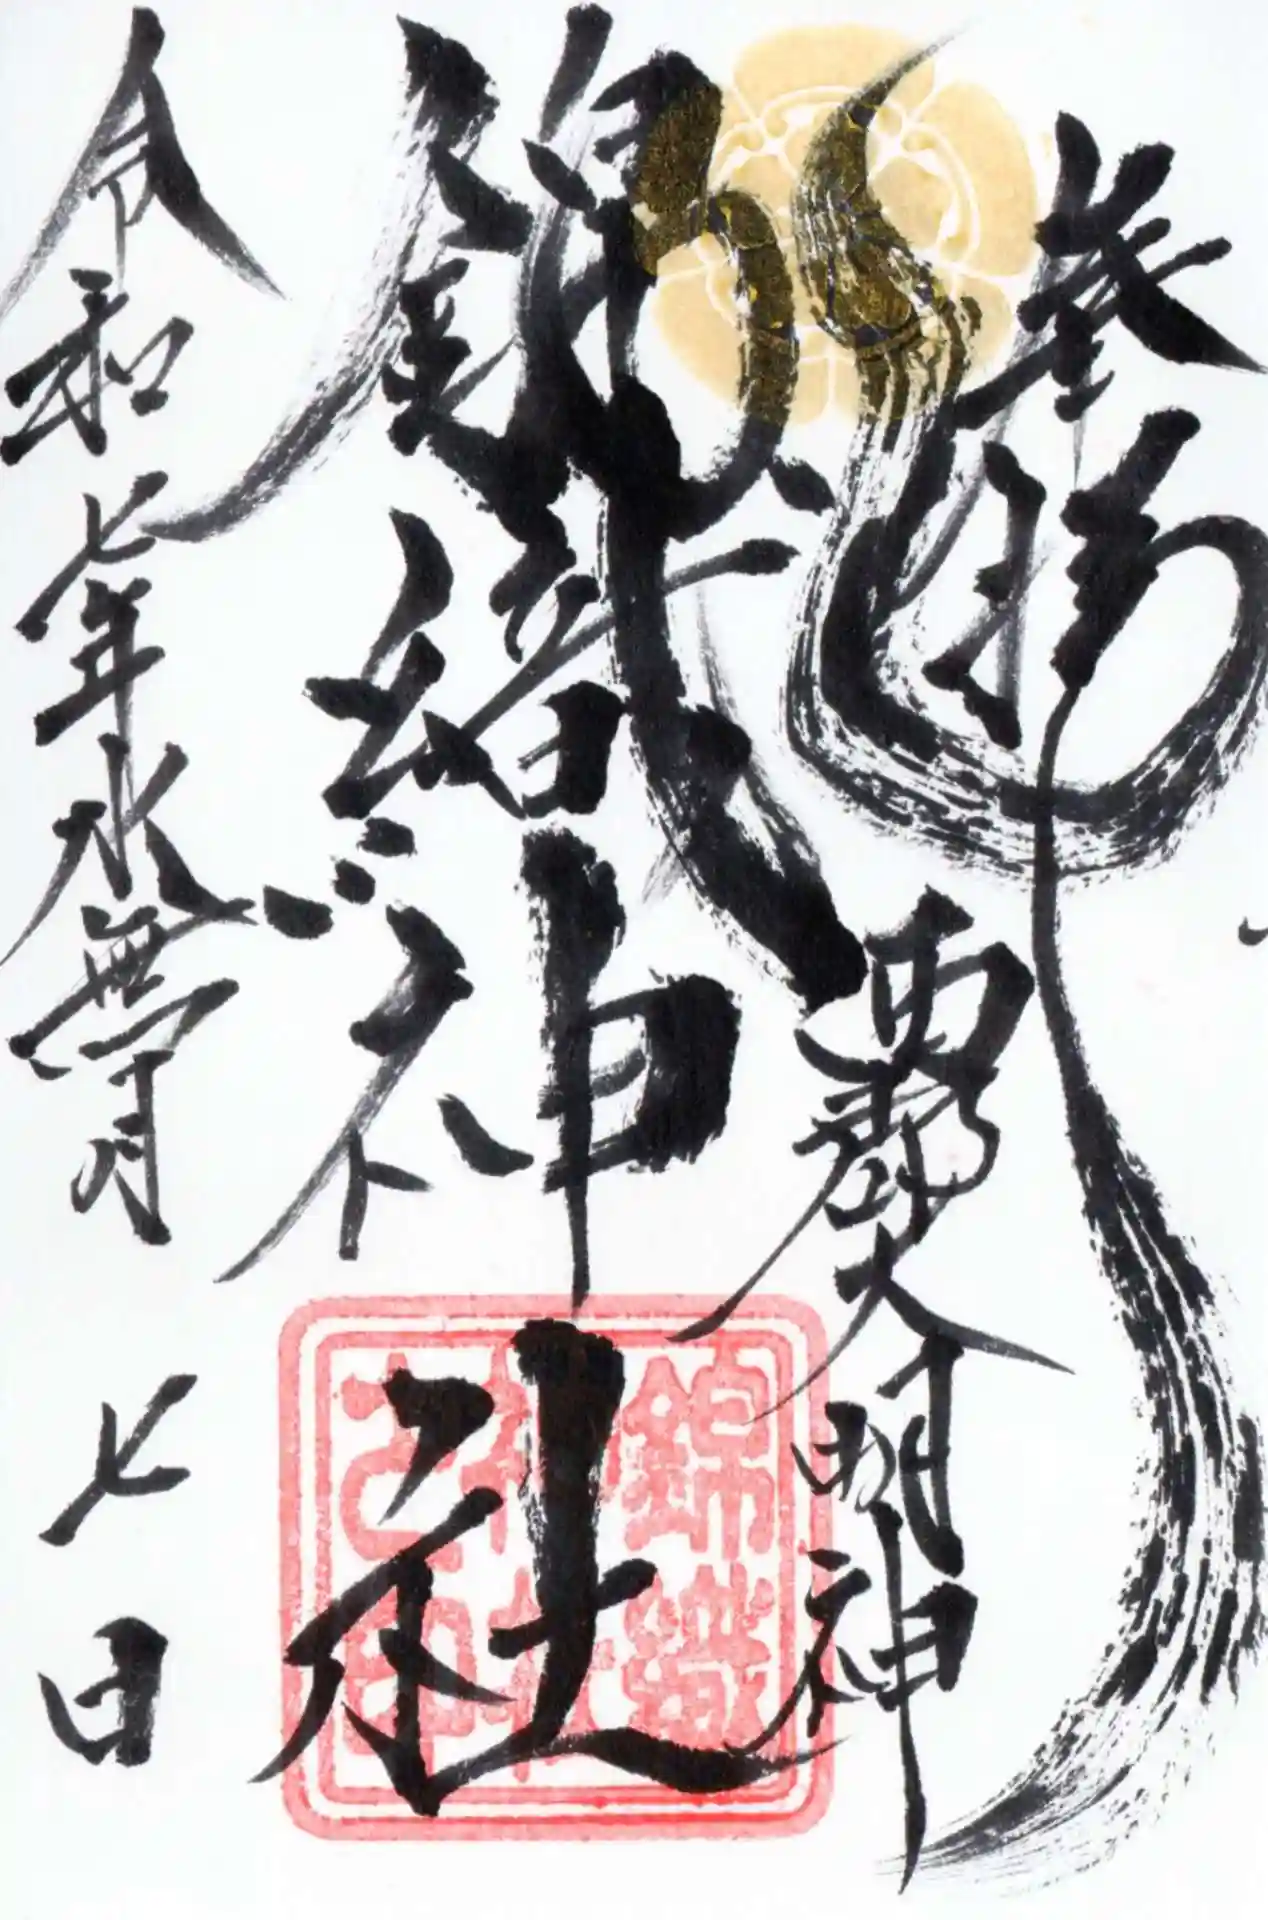 奉拝
西郡大明神
錦織神社
錦織神社之印
令和七年水無月 七日